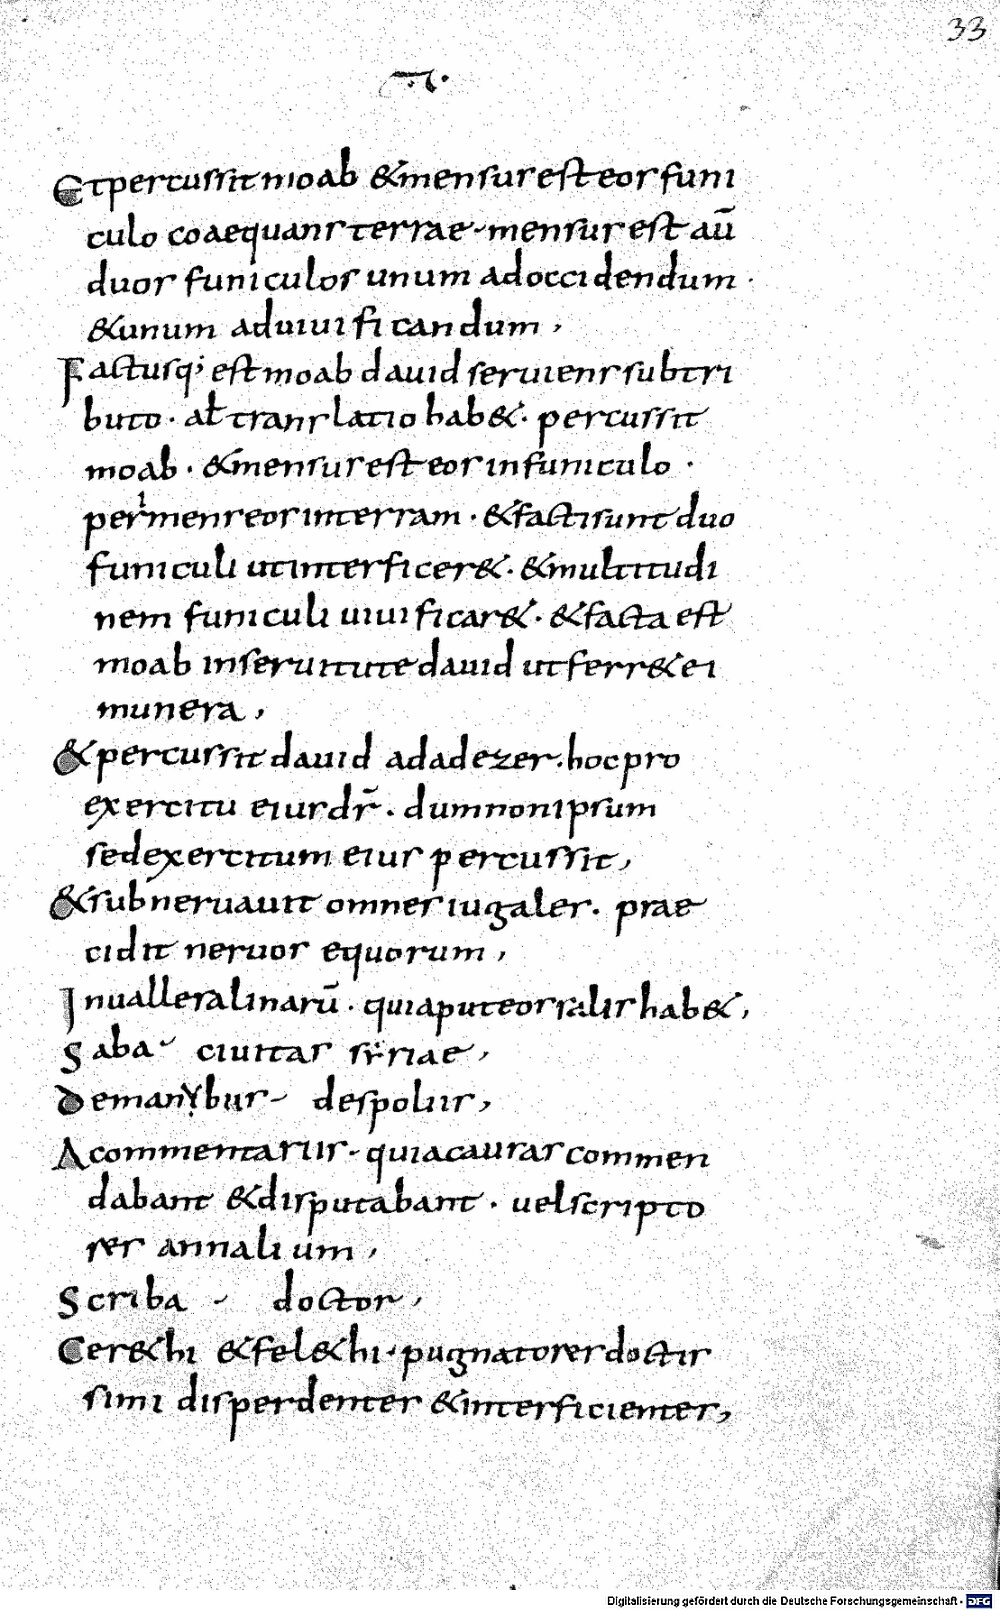 33
Et percussit moab & mensus est eos funi
culo coaequans terrae - mensus est aū
duos funiculos unum ad occidendum ·
& unum ad uiuificandum ,
Factusq; est moab dauid seruiens sub tri
buto · al̄ translatio hab& · percussit
moab · & mensus est eos in funiculo ·
per mens eos in terram · & facti sunt duo
funiculi ut interficer& · & multitudi
nem funiculi uiuificar& · & facta est
moab in seruitute dauid ut ferr& ei
munera ,
& percussit dauid adadezer · hoc pro
exercitu eius dr̄ · dum non ipsum
sed exercitum eius percussit ,
& subneruauit omnes iugales · prae
cidit neruos equorum ,
In ualle salinarū · quia puteos salis hab& ,
Saba - ciuitas syriae ,
De manybus - despoliis ,
A commentariis - quia causas commen
dabant & disputabant · uel scripto
res annalium ,
Scriba - doctor ,
Cer&hi & fel&hi - pugnatores doctis
simi disperdentes & interficientes ,
Digitalisierung gefördert durch die Deutsche Forschungsgemeinschaft - DFG